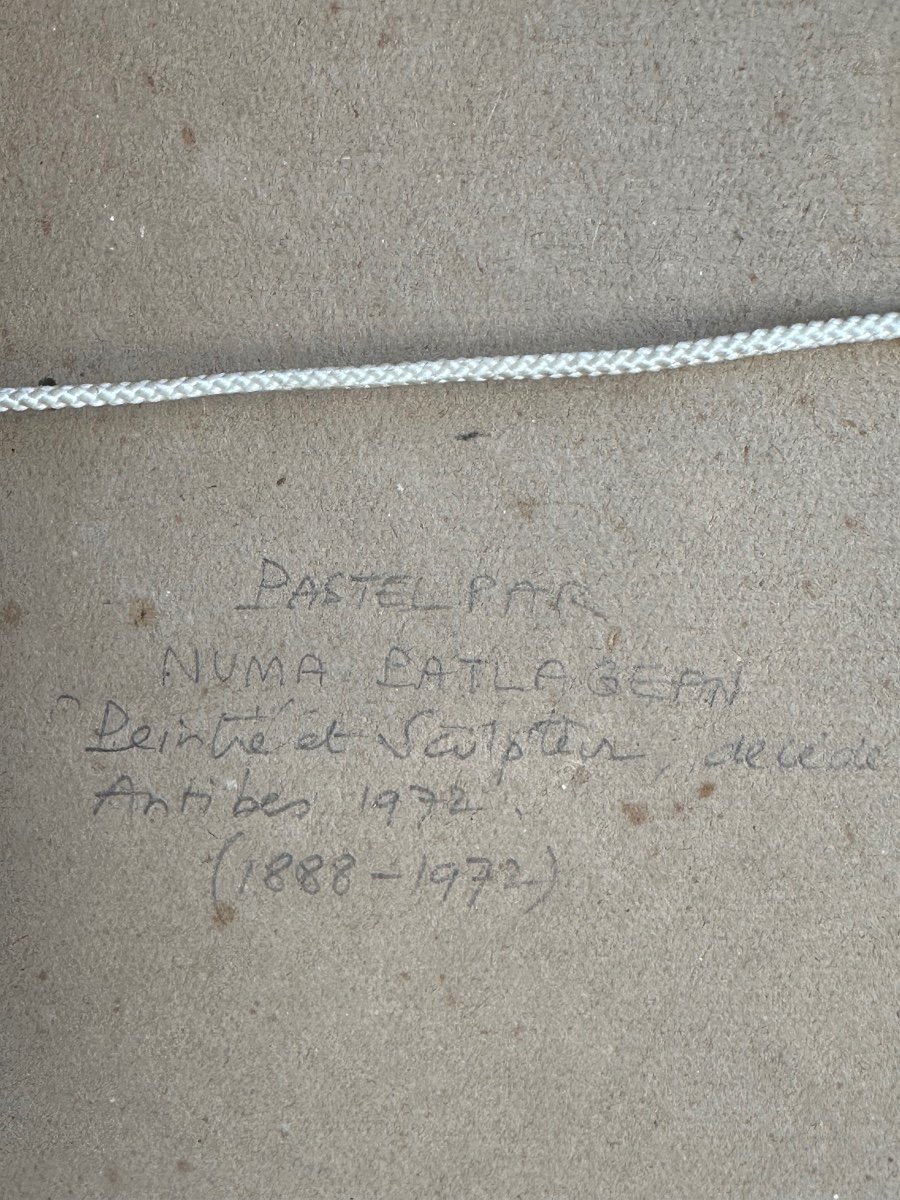 PASTEL PAR
NUMA PATLAGEAN
Peintre et Sculpteur, décédé
Antibes 1972.
(1888-1972)